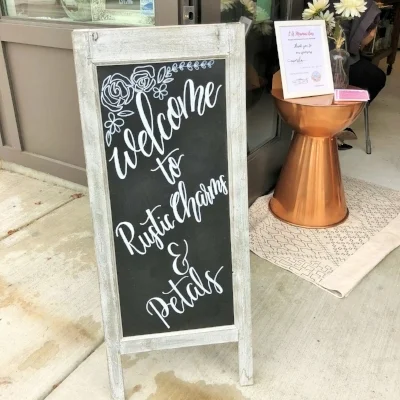 Welcome
to
Rustic Charms
&
Petals